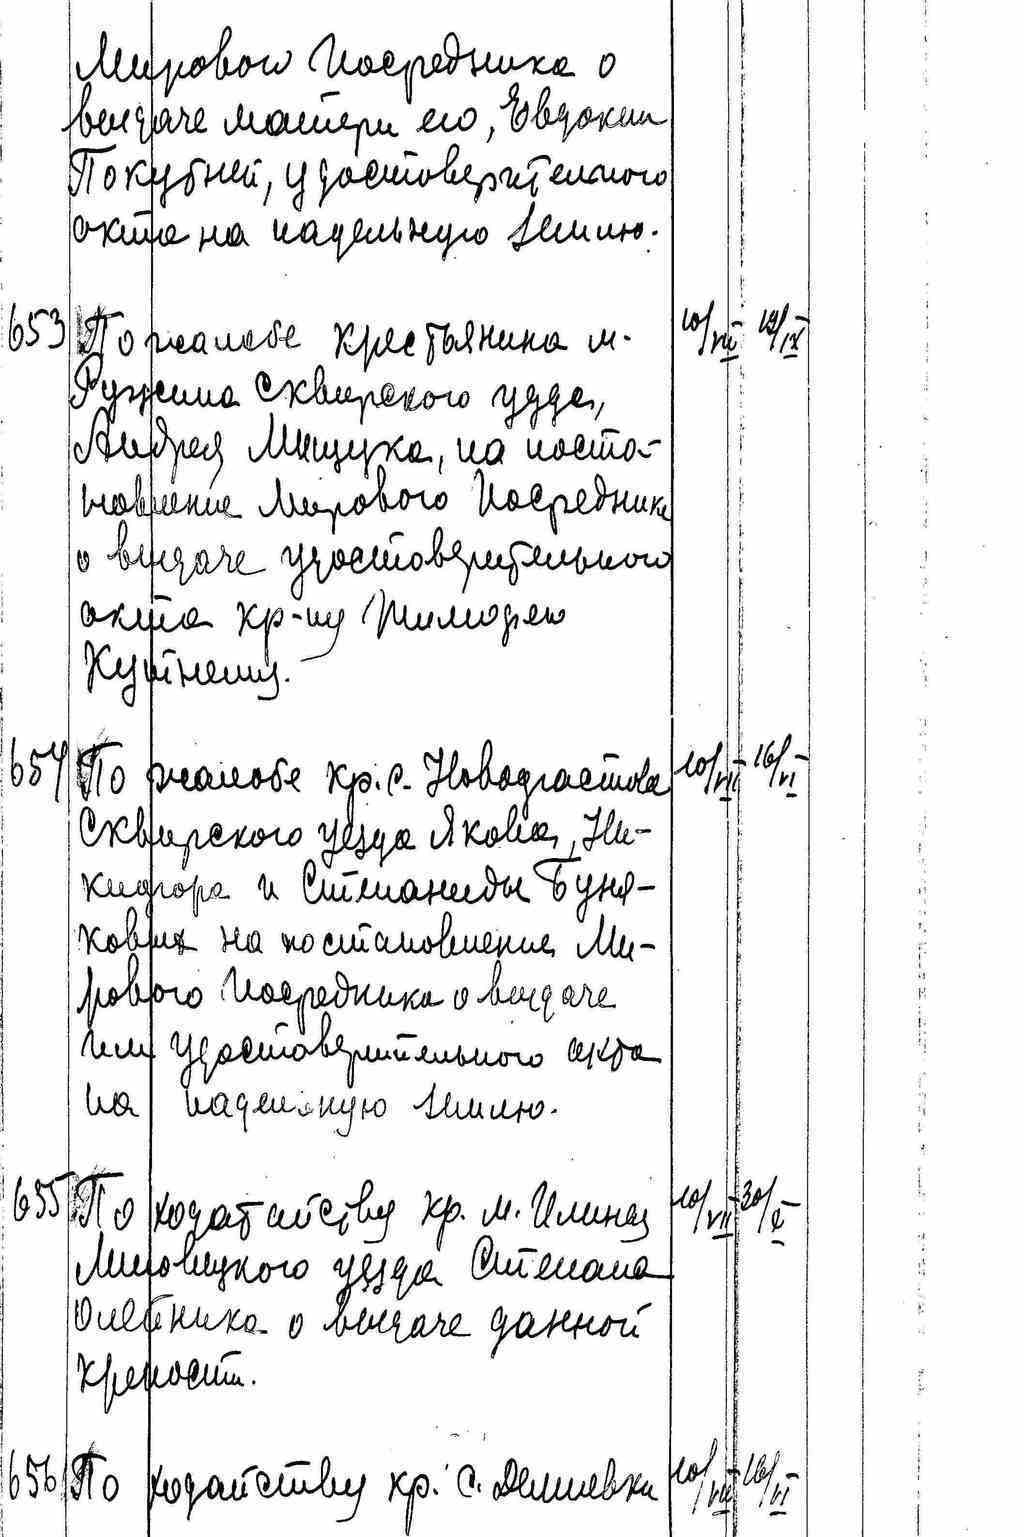 Мирового Посредника о
выдаче матери его, Евдокии
Покутней, удостоверительного
акта на надельную землю.
653 По жалобе крестьянина м. 10/VII 12/IX
Ружина Сквирского уезда,
Андрея Мищука, на поста-
новление Мирового Посредника
о выдаче удостоверительного
акта кр-ну Тимофею
Кутнему.
654 По жалобе кр. с. Новофастова 10/VII 16/VI
Сквирского уезда Якова, Ни-
кифора и Степаниды Буня-
ковых на постановление Ми-
рового Посредника о выдаче
им удостоверительного акта
на надельную землю.
655 По ходатайству кр. м. Илинец 10/VII 30/X
Липовецкого уезда Степана
Олейника о выдаче данной
крепости.
656 По ходайству кр. с. Демиевки 10/VII 16/VI